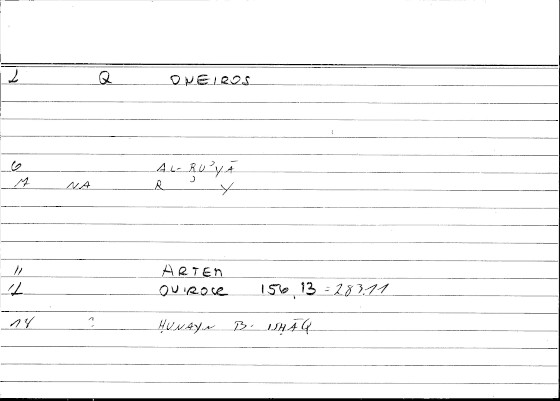 1 Q ONEIROS
6 AL-RUʾYĀ
M NA R ʾ Y
11 ARTEM
12 OVIROCR 156,13 = 283.11
14 ? ḤUNAYN B- ISḤĀQ